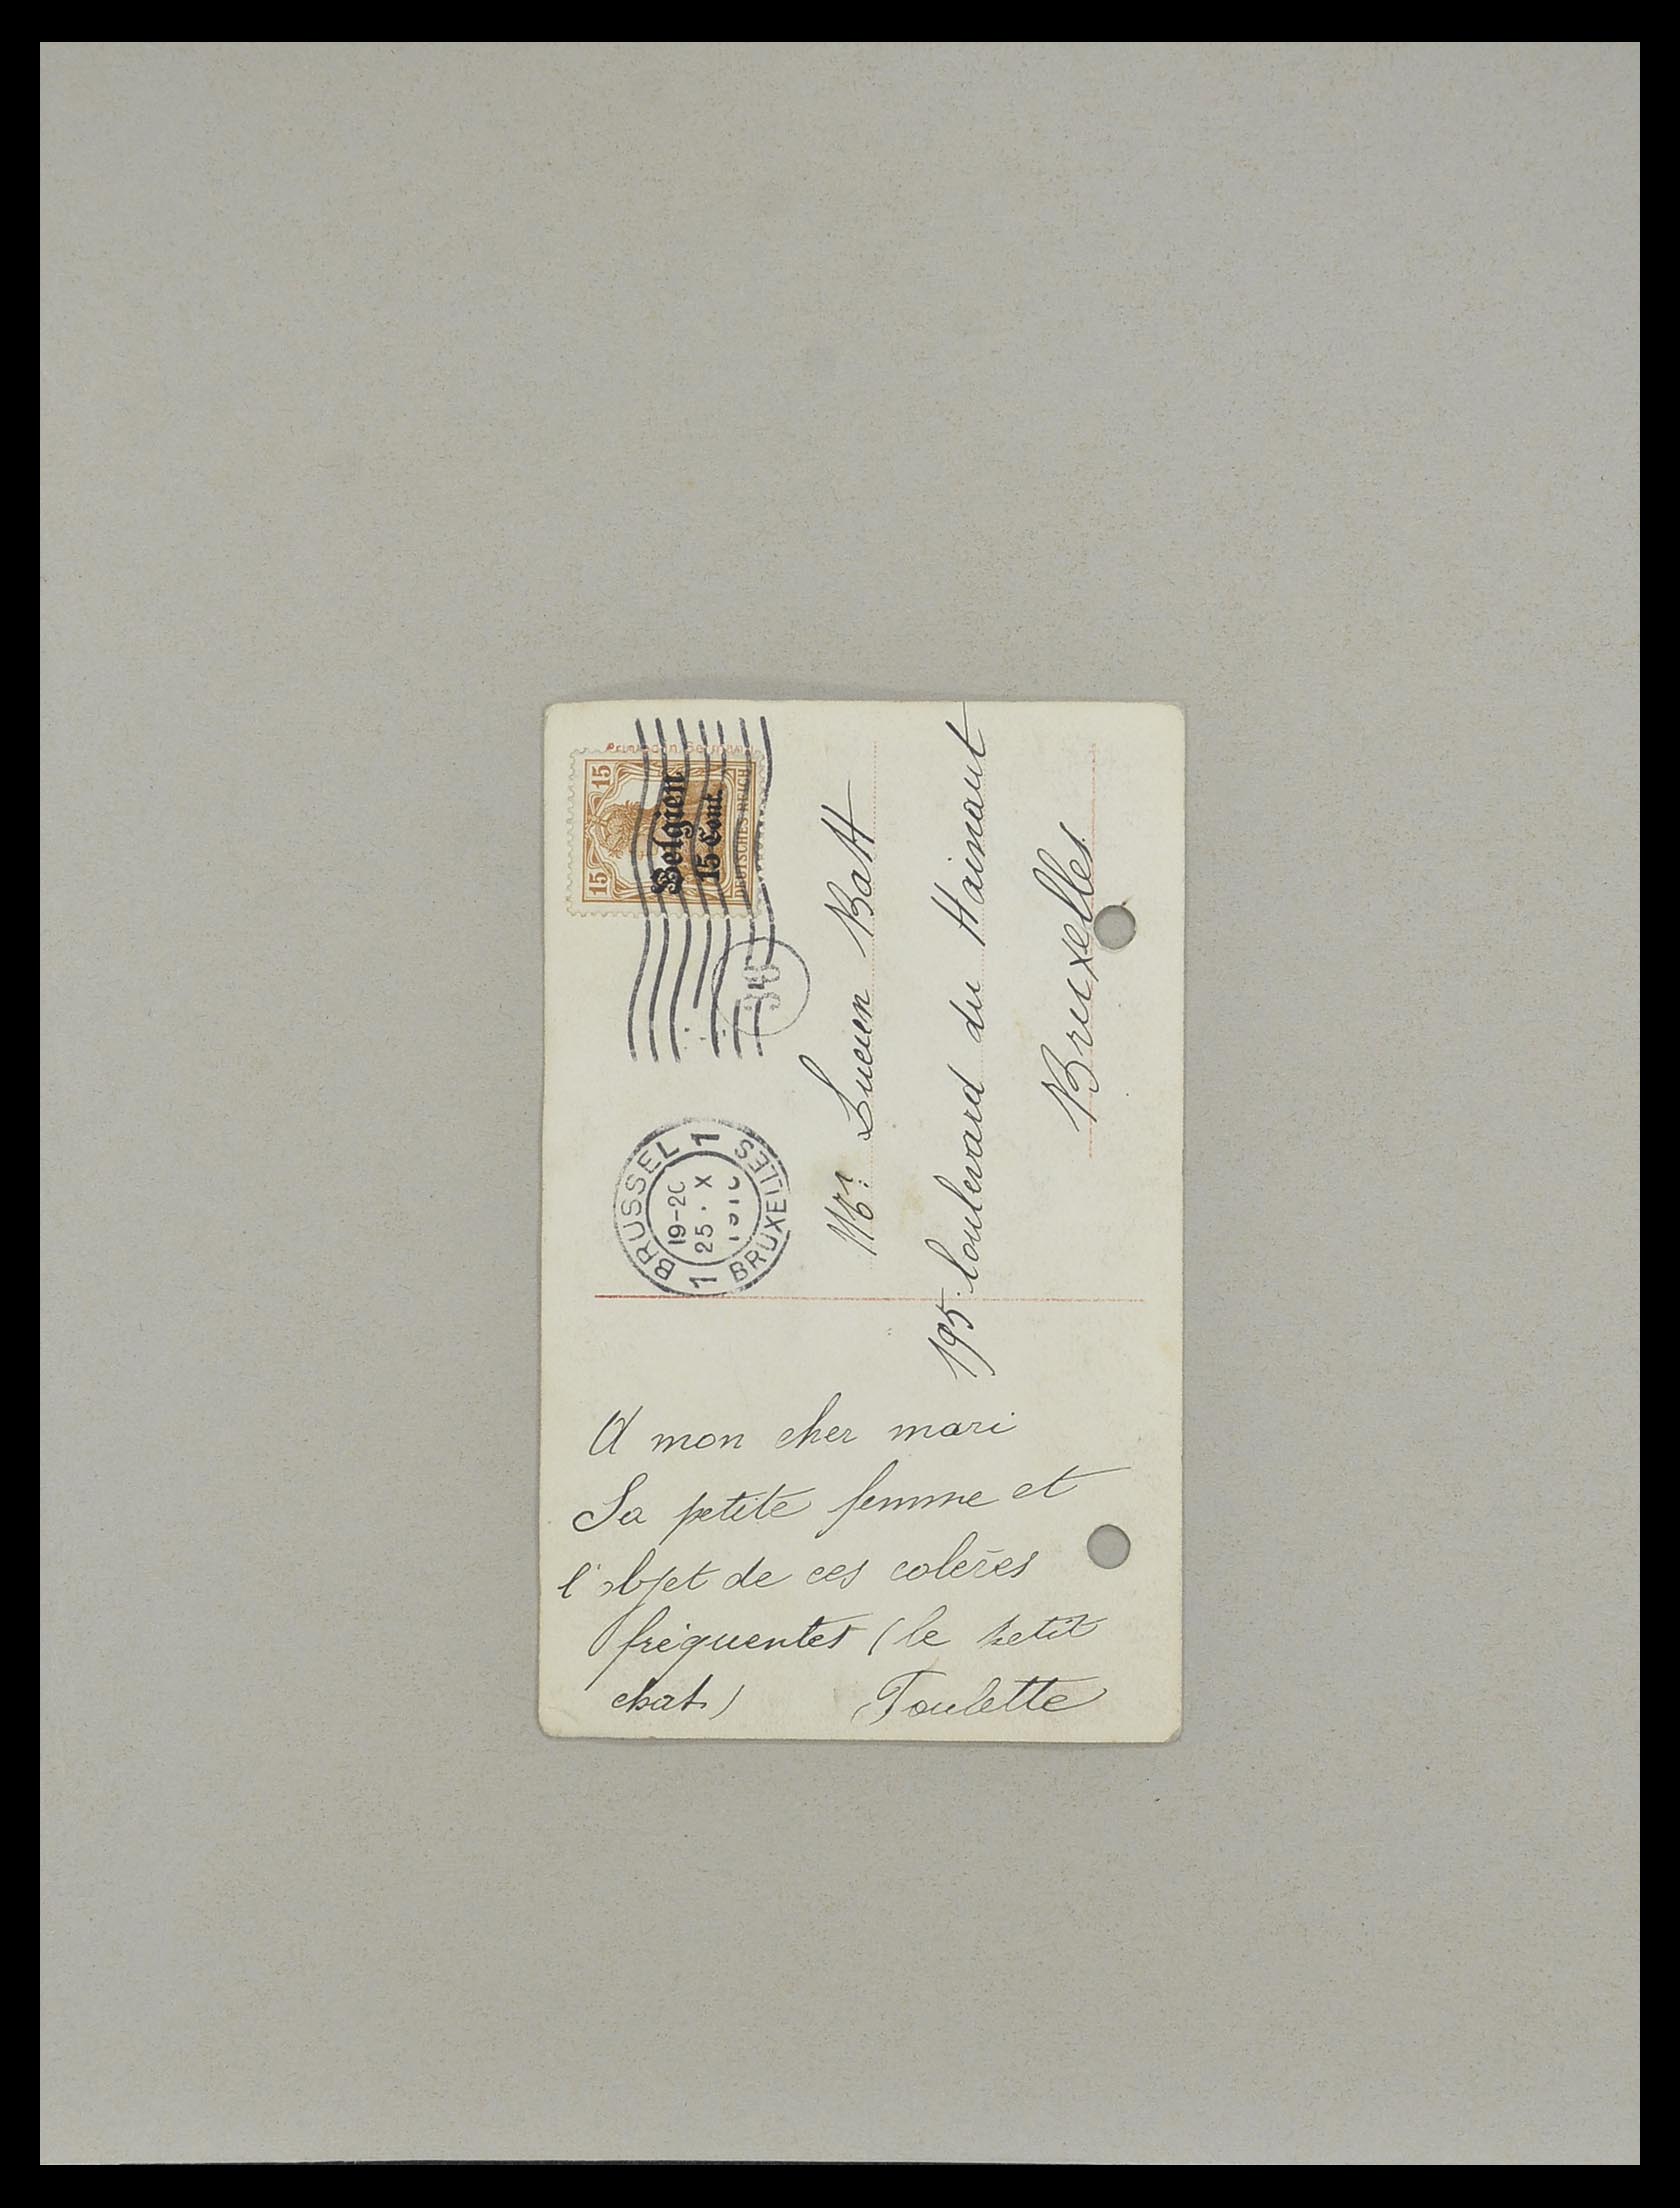 Printed in Germany
15 15
Belgien
15 Cent.
DEUTSCHES REICH
BRUSSEL
1 1
19-20
25. X
BRUXELLES
Mr. Lucien Batt
195 boulevard du Hainaut
Bruxelles
A mon cher mari
Sa petite femme et
l'objet de ces colères
fréquentes (le petit
chat)
Toulette